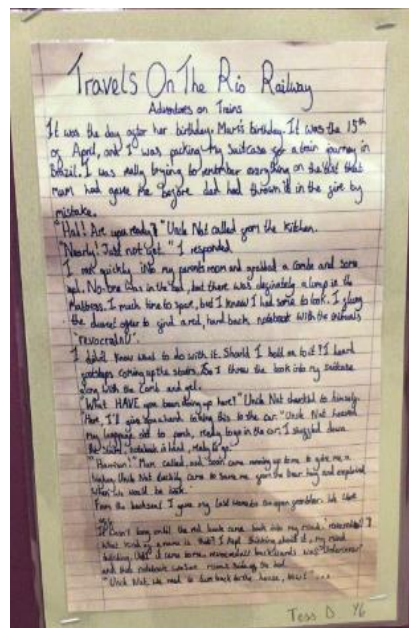 Travels On The Rio Railway
Adventures on Trains
It was the day after her birthday. Mum's birthday. It was the 15th
of April, and I was packing my suitcase for a train journey in
Brazil. I was really trying to remember everything on the list that
mum had gave me before dad had thrown it in the fire by
mistake.
"Hal! Are you ready?" Uncle Nat called from the kitchen.
"Nearly! Just not yet." I responded
I ran quickly into my parents room and grabbed a comb and some
gel. No-one was in the bed, but there was definately a lump in the
mattress. I much time to spare, but I knew I had some to look. I flung
the duvet over to find a red, hard back notebook with the initials
I didn't know what to do with it. Should I hold on to it? I heard
footsteps coming up the stairs. So I threw the book into my suitcase
along with the comb and gel.
"What HAVE you been doing up here?" Uncle Nat
"Here, I'll give you a hand to take this to the car." Uncle Nat heaved
my luggage out to ready to go in the car. I down
the stairs, notebook in hand, ready to go.
Mum called, and soon came running up to me to give me a
Uncle Nat luckily came to save me from the bear hug and explained
when we would be back.
From the backseat I gave my last wave to
It wasn't long until the red book came back into my mind.
What kind of a name is that? I kept thinking about it, my mind
until it came to me, backwards was
and that notebook was on mums side of the bed.
"Uncle Nat. We need to turn back to the house, NOW!"...
Tess D Y6